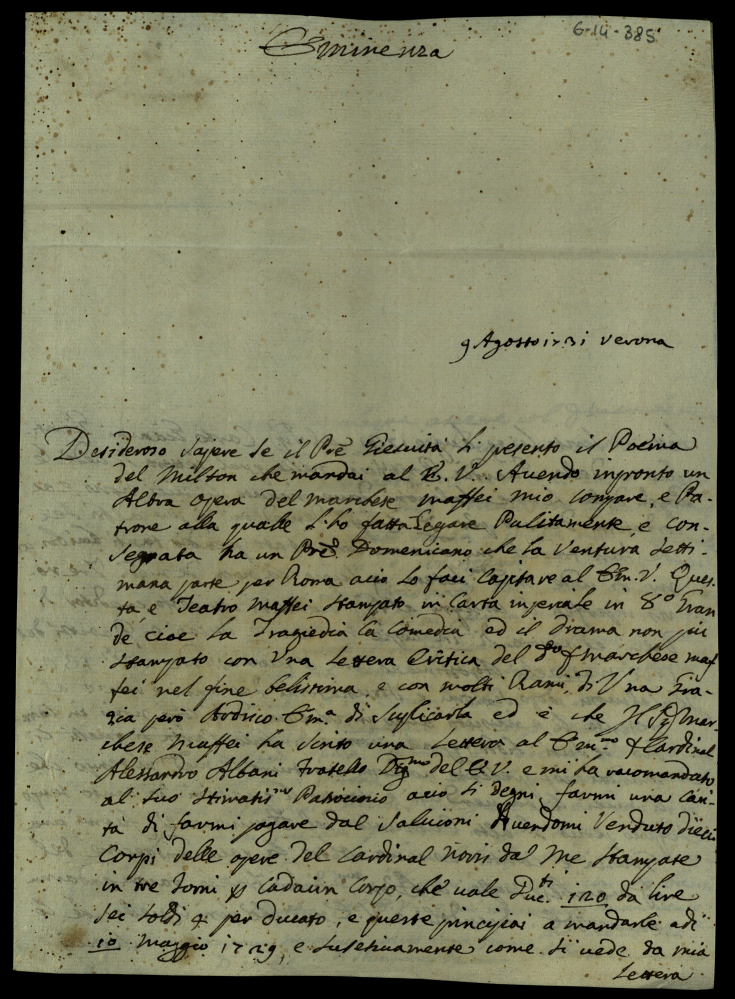 6-14-385
Eminenza
9 Agosto 1731 Verona
Desideroso sapere se il Pre Giesuita li presento il Poema
del Milton che mandai al E. V. Avendo inpronto un
Altra opera del Marchese Maffei mio Compare, e Pa-
trone alla qualle l'ho fatta Legare Pulitamente, e con-
segnata ha un Pre Domenicano che la Ventura setti-
mana parte per Roma acio lo faci Capitare al Em. V. Ques-
ta, e Teatro Maffei stampato in Carta inperiale in 8o Gran
de cioe la Tragiedia la Comedia ed il Drama non piu
stampato con Una lettera Critica del Marchese Maf
fei nel fine belissima, e con molti Rami, di Una Gra-
zia però Ardirisco Ema di Suplicarla ed è che Il Sig Mar-
chese Maffei ha scrito una lettera al Emmo Cardinal
Alessandro Albani fratello Digmo del E. V. e mi ha racomandato
al suo stimatismo Patrocinio acio si degni farmi una Cari-
tà di farmi pagare dal Salvioni Avendomi Venduto dieci
Corpi delle opere del Cardinal Noris da Me stampate
in tre tomi Cadaun Corpo, che vale Ducti 120 da lire
sei soldi 4 per ducato, e queste principiai a mandarle adi
10 Maggio 1729, e susetivamente come si vede da mia
Lettera